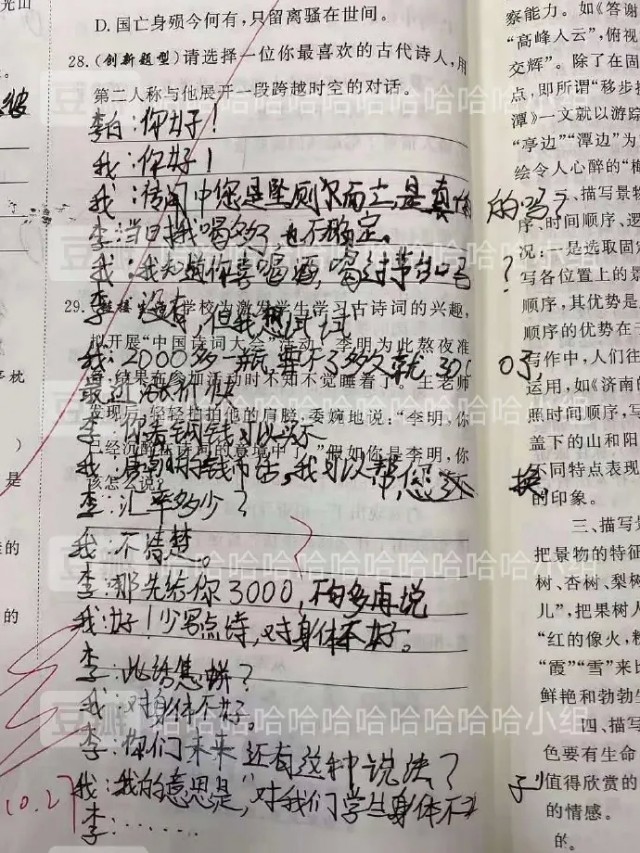 光山
D. 国亡身殒今何有,只留离骚在世间。
28.(创新题型)请选择一位你最喜欢的古代诗人,用
第二人称与他展开一段跨越时空的对话。
李白:你好!
我:你好!
我:传闻中您是坠则尔而亡,是真的吗?
李:当日我喝多了,也不确定。
我:我知道你喜喝酒,喝过茅台吗?
李:没有,但我想试试
29. 学校为激发学生学习古诗词的兴趣,
拟开展“中国诗词大会”活动,李明为此熬夜准
我:2000多一瓶,要不了多久就3000了
最近涨价快
备,结果在参加活动时不知不觉睡着了,王老师
发现后,轻轻拍拍他的肩膀,委婉地说:“李明,你
李:你看铜钱可以不
已经沉醉在诗词的意境中了。”假如你是李明,你
我:唐朝时钱币话,我可以帮您换
该怎么说?
李:汇率多少?
我:不清楚。
李:那先给你3000,不够多再说
我:好!少写点诗,对身体不好。
李:此话怎讲?
我:对身体不好。
李:你们未来还有这种说法?
我:我的意思是“对我们学生身体不好”
李:……
10.27
察能力。如《答谢
“高峰入云”,俯视
交辉”。除了在固
点,即所谓“移步
潭》一文就以游踪
“亭边”“潭边”为
绘令人心醉的“
二、描写景物
序、时间顺序、逻
况:一是选取固定
写各位置上的景
顺序,其优势是
顺序的优势在于
写作中,人们往
运用,如《济南的
照时间顺序,写
盖下的山和阳
不同特点表现
的印象。
三、描写景
把景物的特征
树、杏树、梨树
儿”,把果树人
“红的像火,粉
“霞”“雪”来比
鲜艳和勃勃生
四、描写
色要有生命
值得欣赏的
的情感。
的。
豆瓣
哈哈哈哈哈哈哈哈哈小组